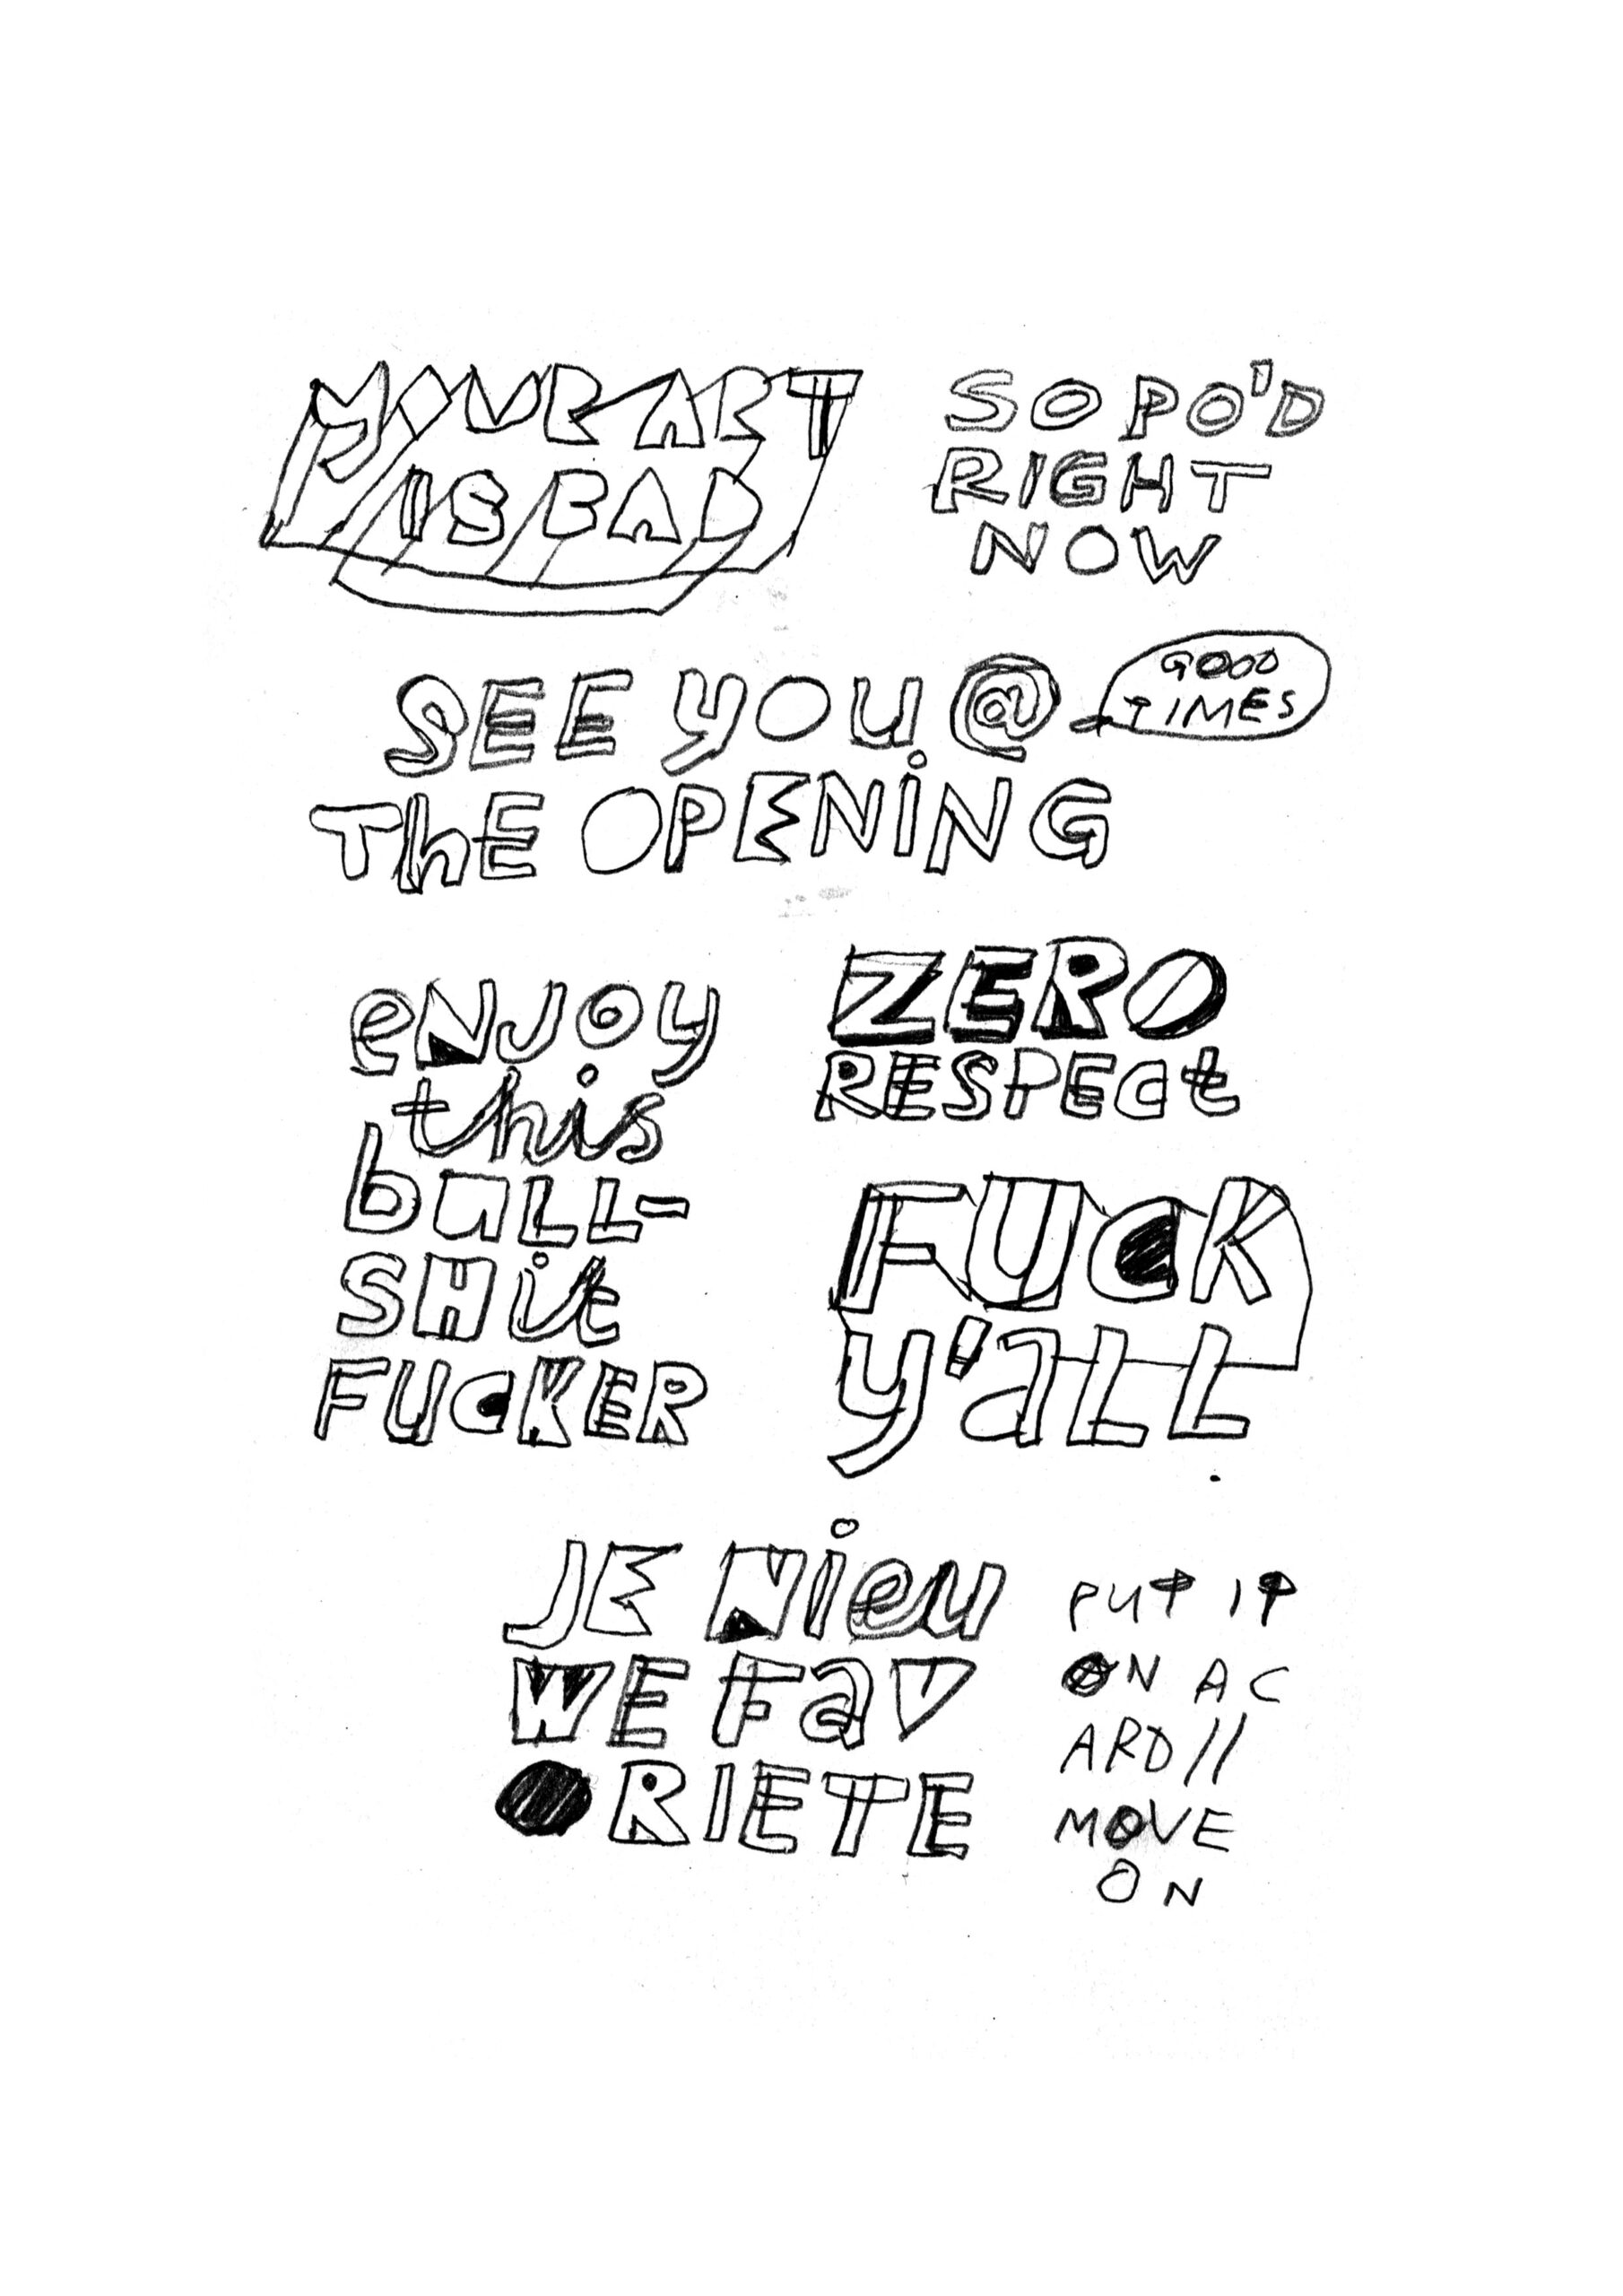 YOUR ART
IS BAD
SO PO'D
RIGHT
NOW
SEE YOU @
THE OPENING
GOOD
TIMES
ENJOY
this
bULL-
SHit
FUCKER
ZERO
RESPECt
FUCK
Y'aLL
JE NiEU
WE FaV
ORIETE
PUT IT
ON A C
ARD//
MOVE
ON